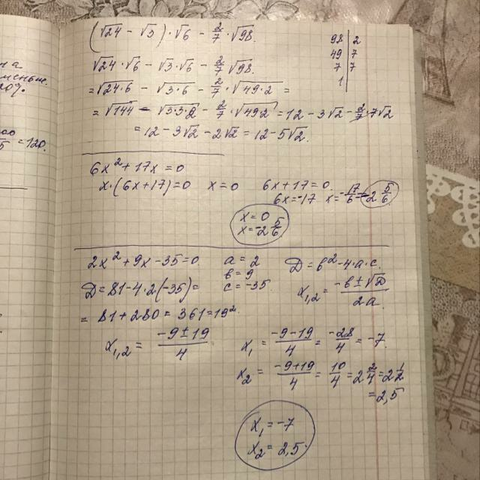 (√24 − √3)·√6 − 2/7·√98
98 | 2
49 | 7
7 | 7
1 |
√24·√6 − √3·√6 − 2/7·√98
= √24·6 − √3·6 − 2/7·√49·2 =
= √144 − √3·3·2 − 2/7·√49·2 = 12 − 3√2 − 2/7·7√2
= 12 − 3√2 − 2√2 = 12 − 5√2.
6x² + 17x = 0
x·(6x+17) = 0 x = 0 6x + 17 = 0
6x = −17 x = −17/6 = −2 5/6
x = 0
x = −2 5/6
2x² + 9x − 35 = 0 a = 2 D = b² − 4·a·c.
b = 9
D = 81 − 4·2(−35) = c = −35 x₁,₂ = (−b ± √D)/2a
= 81 + 280 = 361 = 19²
x₁,₂ = (−9 ± 19)/4 x₁ = (−9−19)/4 = −28/4 = −7.
x₂ = (−9+19)/4 = 10/4 = 2 2/4 = 2 1/2
= 2,5
x₁ = −7
x₂ = 2,5.
= 120.
20%.